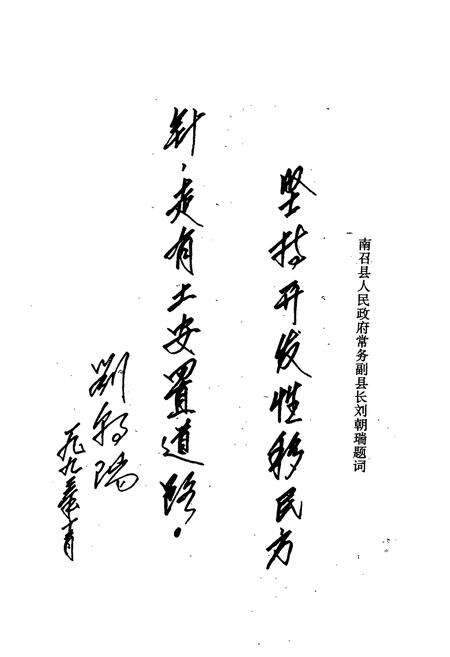 南召县人民政府常务副县长刘朝瑞题词
坚持开发性移民方
针，走有土安置道路。
刘朝瑞
一九九三年十月